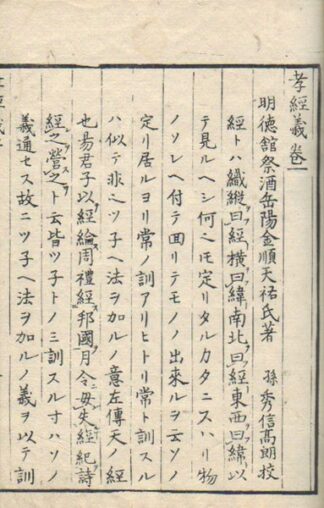 孝經義卷一
明徳舘祭酒岳陽金順天祐氏著 孫秀信髙朗校
經トハ織縱曰經横曰緯南北曰經東西曰緯以
テ見ルヘシ何ニモ定リタルカタニスハリ物
ノソレヘ付テ回リテモノノ出來ルヲ云ソノ
定リ居ルヨリ常ノ訓アリヒトリ常ト訓スル
ハ似テ非也ツ子ヘ法ヲ加ルノ意左傳天ノ經
也昜君子以經綸周禮經邦國月令毋失經紀詩
經之營之ト云皆ツ子トノミ訓スル寸ハソノ
義通セス故ニツ子ヘ法ヲ加ルノ義ヲ以テ訓